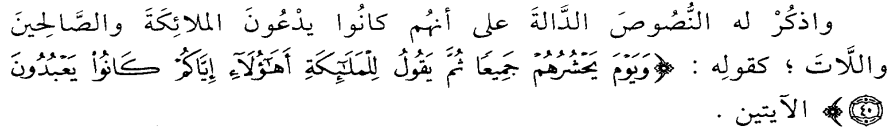 واذكُرْ له النُّصُوصَ الدَّالةَ على أنهُم كانُوا يدْعُونَ الملائِكَةَ والصَّالِحِينَ
واللَّاتَ ؛ كقولِه : ﴿وَيَوْمَ يَحْشُرُهُمْ جَمِيعًا ثُمَّ يَقُولُ لِلْمَلَٰٓئِكَةِ أَهَٰٓؤُلَآءِ إِيَّاكُمْ كَانُوا۟ يَعْبُدُونَ
۝٤٠﴾ الآيتين .